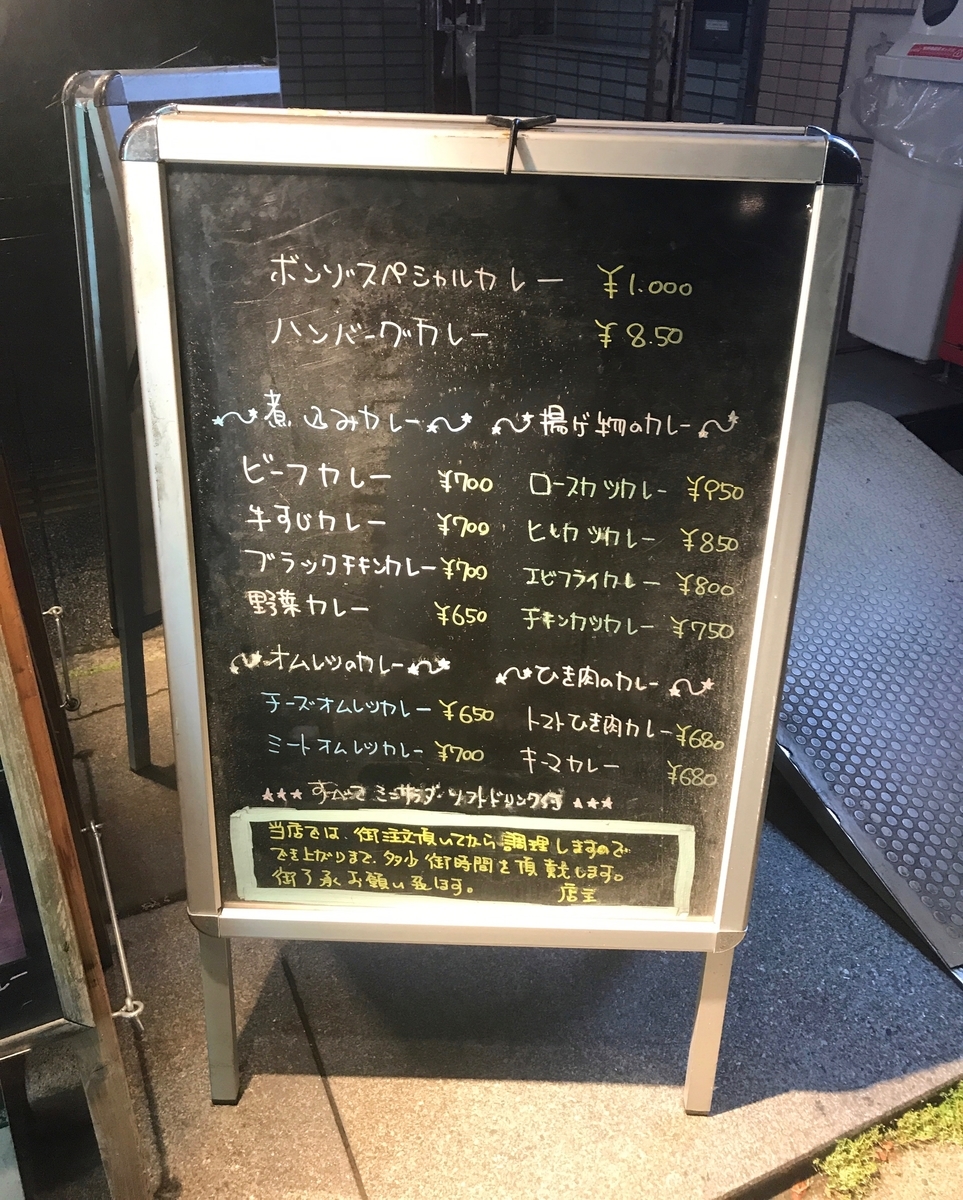 ボンゾスペシャルカレー ¥1.000
ハンバーグカレー ¥8.50
煮込みカレー
ビーフカレー ¥700
牛すじカレー ¥700
ブラックチキンカレー ¥700
野菜カレー ¥650
揚げ物のカレー
ロースカツカレー ¥950
ヒレカツカレー ¥850
エビフライカレー ¥800
チキンカツカレー ¥750
オムレツのカレー
チーズオムレツカレー ¥650
ミートオムレツカレー ¥700
ひき肉のカレー
トマトひき肉カレー ¥680
キーマカレー ¥680
★★★ すべて ミニサラダ・ソフトドリンク付 ★★★
当店では、御注頂いてから調理しますので
でき上がりまで、多少御時間を頂戴します。
御了承お願い致します。 店主